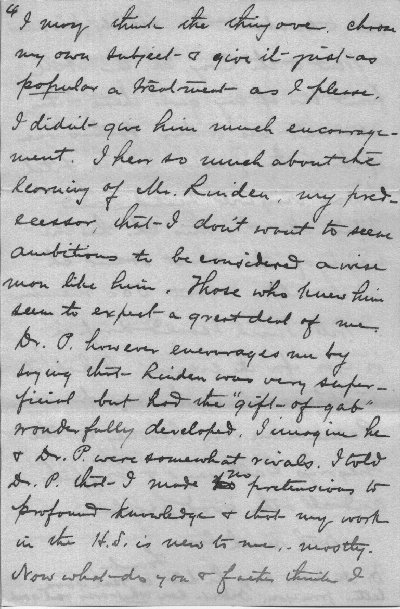 4
I may think the thing over. choose
my own subject & give it just as
popular a treatment as I please.
I didn't give him much encourage-
ment. I hear so much about the
learning of Mr. Linden, my pred-
ecessor, that I don't want to seem
ambitious to be considered a wise
man like him. Those who knew him
seem to expect a great deal of me.
Dr. P. however encourages me by
saying that Linden was very super-
ficial but had the "gift-of-gab"
wonderfully developed. I imagine he
& Dr. P. were somewhat rivals. I told
Dr. P. that I made no pretensions to
profound knowledge & that my work
in the H.S. is new to me, mostly.
Now what do you & father think I